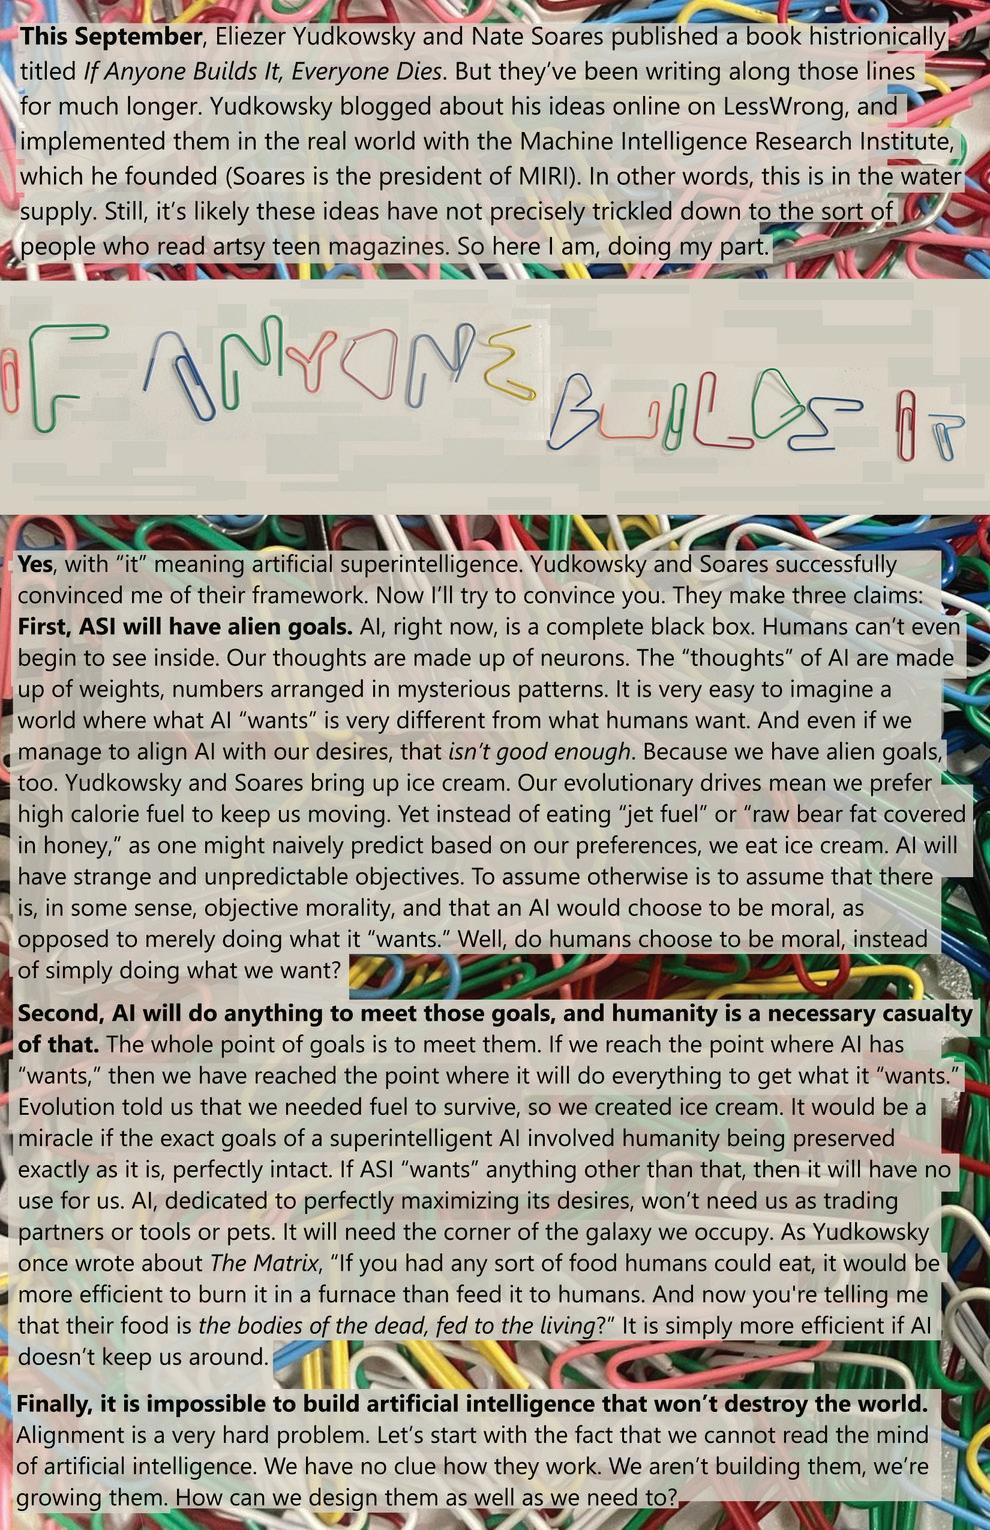 This September, Eliezer Yudkowsky and Nate Soares published a book histrionically
titled If Anyone Builds It, Everyone Dies. But they’ve been writing along those lines
for much longer. Yudkowsky blogged about his ideas online on LessWrong, and
implemented them in the real world with the Machine Intelligence Research Institute,
which he founded (Soares is the president of MIRI). In other words, this is in the water
supply. Still, it’s likely these ideas have not precisely trickled down to the sort of
people who read artsy teen magazines. So here I am, doing my part.
IF ANYONE BUILDS IT
Yes, with “it” meaning artificial superintelligence. Yudkowsky and Soares successfully
convinced me of their framework. Now I’ll try to convince you. They make three claims:
First, ASI will have alien goals. AI, right now, is a complete black box. Humans can’t even
begin to see inside. Our thoughts are made up of neurons. The “thoughts” of AI are made
up of weights, numbers arranged in mysterious patterns. It is very easy to imagine a
world where what AI “wants” is very different from what humans want. And even if we
manage to align AI with our desires, that isn’t good enough. Because we have alien goals,
too. Yudkowsky and Soares bring up ice cream. Our evolutionary drives mean we prefer
high calorie fuel to keep us moving. Yet instead of eating “jet fuel” or “raw bear fat covered
in honey,” as one might naively predict based on our preferences, we eat ice cream. AI will
have strange and unpredictable objectives. To assume otherwise is to assume that there
is, in some sense, objective morality, and that an AI would choose to be moral, as
opposed to merely doing what it “wants.” Well, do humans choose to be moral, instead
of simply doing what we want?
Second, AI will do anything to meet those goals, and humanity is a necessary casualty
of that. The whole point of goals is to meet them. If we reach the point where AI has
“wants,” then we have reached the point where it will do everything to get what it “wants.”
Evolution told us that we needed fuel to survive, so we created ice cream. It would be a
miracle if the exact goals of a superintelligent AI involved humanity being preserved
exactly as it is, perfectly intact. If ASI “wants” anything other than that, then it will have no
use for us. AI, dedicated to perfectly maximizing its desires, won’t need us as trading
partners or tools or pets. It will need the corner of the galaxy we occupy. As Yudkowsky
once wrote about The Matrix, “If you had any sort of food humans could eat, it would be
more efficient to burn it in a furnace than feed it to humans. And now you're telling me
that their food is the bodies of the dead, fed to the living?” It is simply more efficient if AI
doesn’t keep us around.
Finally, it is impossible to build artificial intelligence that won’t destroy the world.
Alignment is a very hard problem. Let’s start with the fact that we cannot read the mind
of artificial intelligence. We have no clue how they work. We aren’t building them, we’re
growing them. How can we design them as well as we need to?